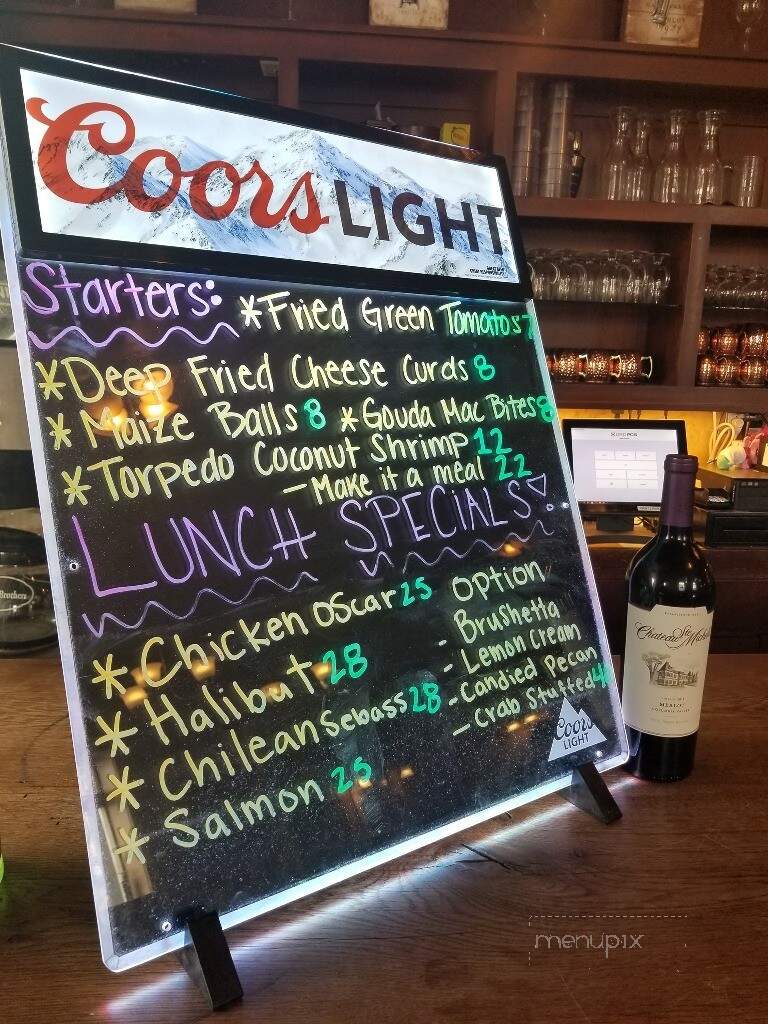 Coors LIGHT
Starters: *Fried Green Tomatos 7
*Deep Fried Cheese Curds 8
*Maize Balls 8 *Gouda Mac Bites 8
*Torpedo Coconut Shrimp 12
-Make it a meal 22
LUNCH SPECIALS!
*Chicken Oscar 25
*Halibut 28
*Chilean Sebass 28
*Salmon 25
Option
- Brushetta
- Lemon Cream
- Candied Pecan
- Crab Stuffed
Coors
LIGHT
Chateau Ste Michelle
MERLOT
menupix